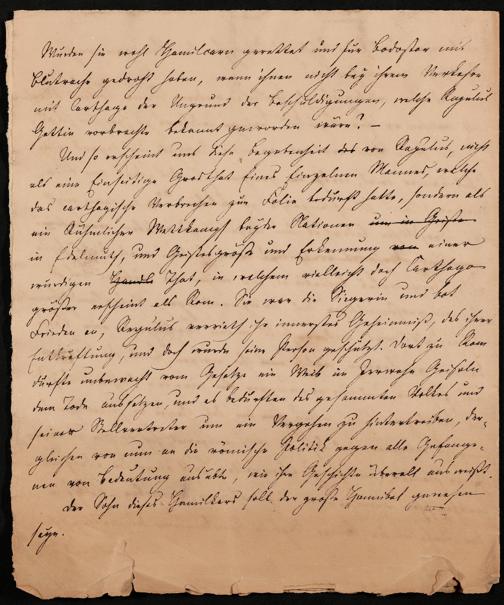 Würden sie wohl Hamilcarn gerettet und für Bodostar mit
Blutrache gedroht haben, wenn ihnen nicht bey ihrem Verkehr
mit Carthago der Ungrund der Beschuldigungen, welche Regulus
Gattin vorbrachte bekannt geworden wäre? —
Und so erscheint uns diese Begebenheit des von Regulus, nicht
als eine Einseitige Grosthat Eines Einzelnen Mannes, welche
das carthagische Verbrechen zur Folie bedurft hatte, sondern als
ein Rühmlicher Wettkampf beyder Nationen um in Geiste
in Edelmuth, und Geistesgröße und Erkennung von einer
würdigen Handl That, in welchem vielleicht doch Carthago
größer erscheint als Rom. Sie war die Siegerin und bot
Frieden an, Regulus verrieth ihr innerstes Geheimniß, des ihrer
Entkräftung, und doch wurde seine Person geschützt. Dort zu Rom
durfte unbewacht vom Gesetze ein Weib in Verwahr Geiseln
dem Tode aussetzen, und es bedurften des gesammten Volkes und
seiner Stellvertreter um ein Vergehen zu hintertreiben, der-
gleichen von nun an die römische Politik gegen alle Gefange-
nen von Bedeutung ausübte, wie ihre Geschichte überall ausweißt.
Der Sohn dieses Hamilkars soll der große Hannibal gewesen
seyn.